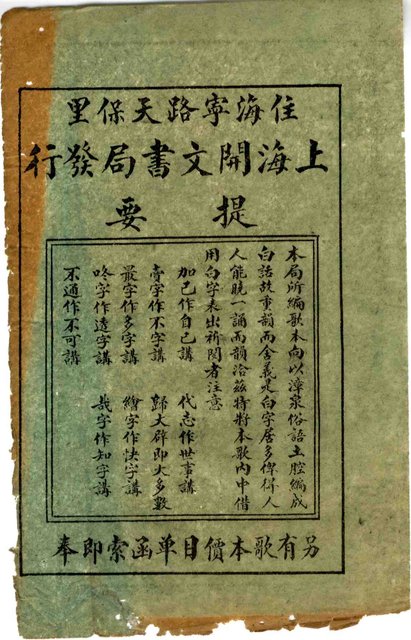 住海寧路天保里
上海開文書局發行
提要
本局所編歌本向以漳泉俗語土腔編成
白話故重韻而舍義是白字居多俾得人
人能曉一誦而韻洽茲特將本歌內中借
用白字表出祈閱者注意
加己作自己講 代志作世事講
賣字作不字講 歸大辟即大多數
最字作多字講 繪字作快字講
咚字作透字講 哉字作知字講
不通作不可講
另有歌本價目单函索即奉